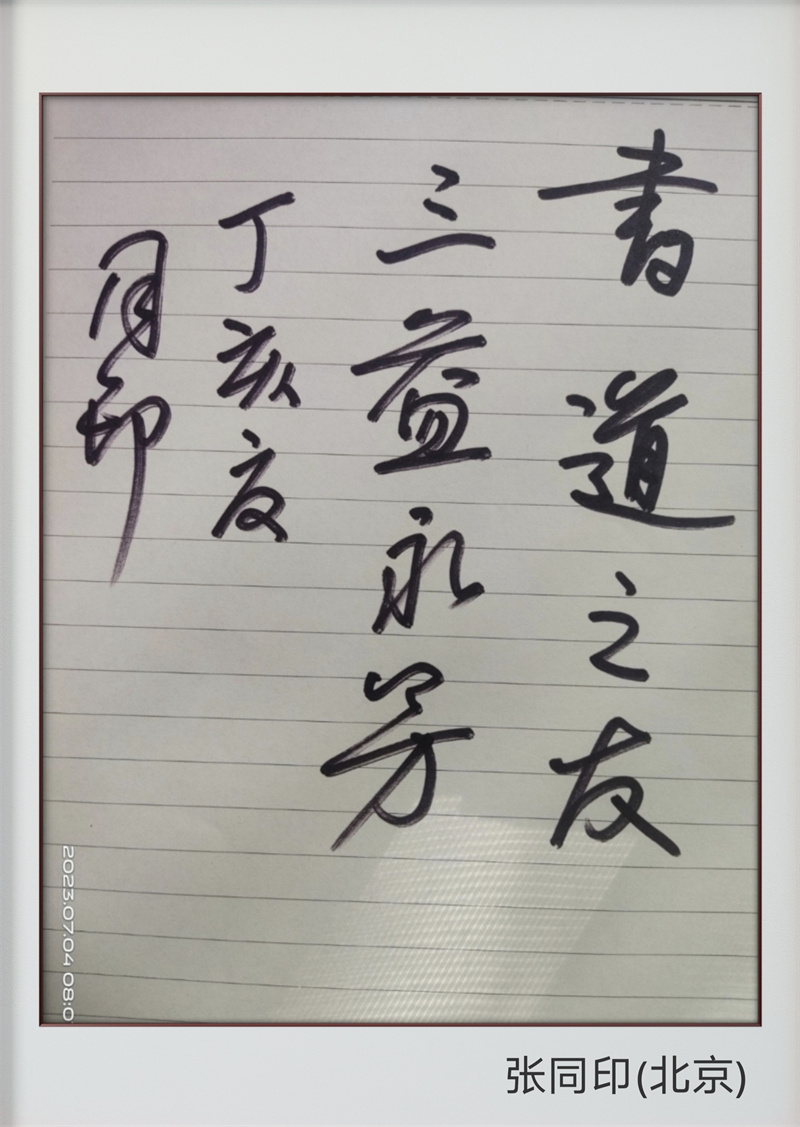 書道之友
三益永芳
丁亥夏
同印
2023.07.04 08:0
张同印(北京)